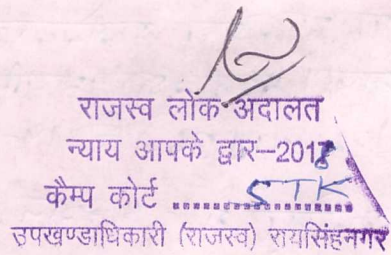 राजस्व लोक अदालत
न्याय आपके द्वार–2018
कैम्प कोर्ट ........ STK
उपखण्डाधिकारी (राजस्व) रायसिंहनगर